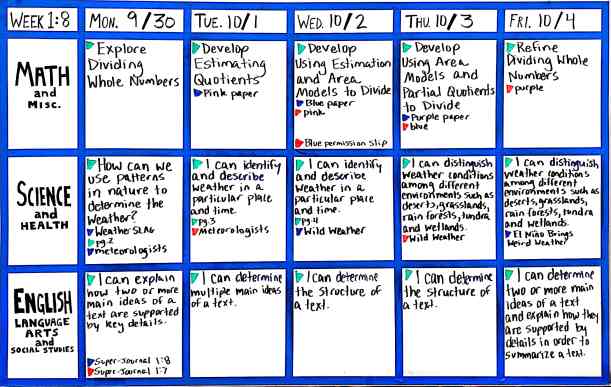 WEEK 1:8
MON. 9/30
TUE. 10/1
WED. 10/2
THU. 10/3
FRI. 10/4
MATH
and
MISC.
Explore
Dividing
Whole Numbers
Develop
Estimating
Quotients
Pink paper
Develop
Using Estimation
and Area
Models to Divide
Blue paper
pink
Blue permission slip
Develop
Using Area
Models and
Partial Quotients
to Divide
Purple paper
blue
Refine
Dividing Whole
Numbers
purple
SCIENCE
and
HEALTH
How can we
use patterns
in nature to
determine the
Weather?
Weather SLAG
pg.2
meteorologists
I can identify
and describe
weather in a
particular place
and time.
pg.3
Meteorologists
I can identify
and describe
weather in a
particular place
and time.
pg.4
Wild Weather
I can distinguish
weather conditions
among different
environments such as
deserts, grasslands,
rain forests, tundra
and wetlands.
Wild Weather
I can distinguish
weather conditions
among different
environments such as
deserts, grasslands,
rain forests, tundra
and wetlands.
El Niño Brings
Weird Weather
ENGLISH
LANGUAGE
ARTS
and
SOCIAL STUDIES
I can explain
how two or more
main ideas of a
text are supported
by key details.
Super-Journal 1:8
Super-Journal 1:7
I can determine
multiple main ideas
of a text.
I can determine
the structure of
a text.
I can determine
the structure of
a text.
I can determine
two or more main
ideas of a text
and explain how they
are supported by
details in order to
summarize a text.